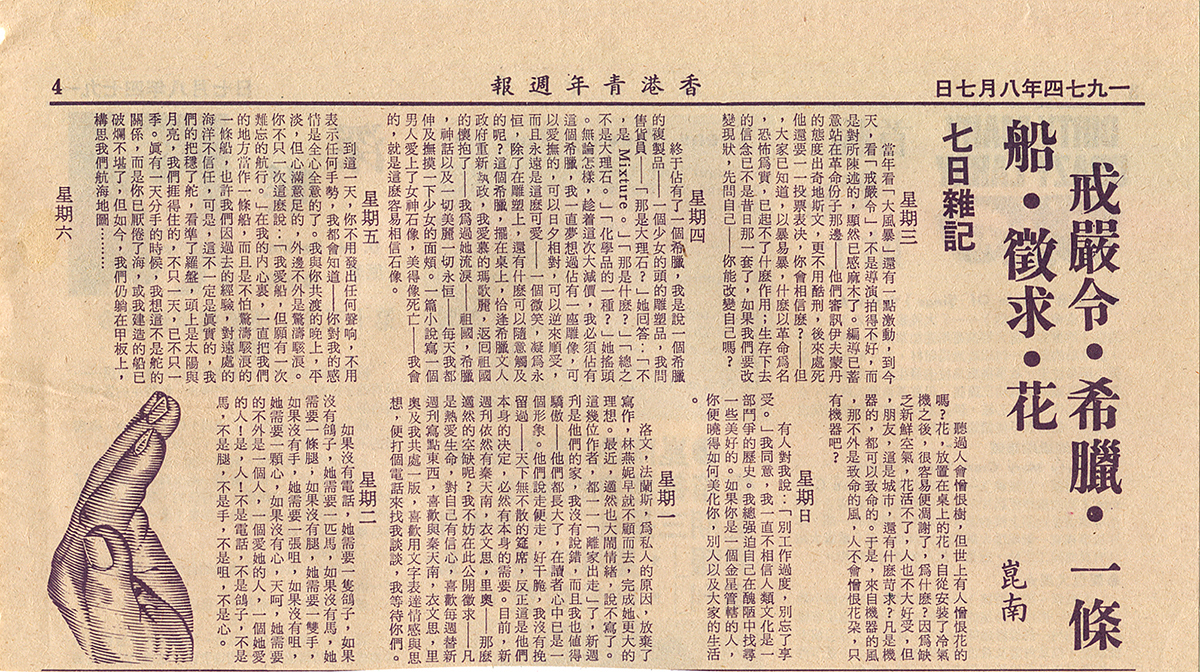 一九七四年八月七日
香港青年週報
4
戒嚴令・希臘・一條
船・徵求・花
崑南
七日雜記
星期三
當年看「大風暴」還有一點激動，到今
天，看「戒嚴令」，不是導演拍得不好，而
是對所陳述的，顯然已感麻木了。編導已蓄
意站在革命份子那邊——他們審訊伊夫蒙丹
的態度出奇地斯文，更不用酷刑，後來處死
他還要一一投票表决，你會相信麽？——但
，大家已知道，以暴易暴，什麽以革命爲名
，恐怖爲實，已起不了什麽作用；生存下去
的信念已不是昔日那一套了，如果我們要改
變現狀，先問自己——你能改變自己嗎？
星期四
終于佔有了一個希臘，我是說一個希臘
的複製品——一個少女的頭的雕塑品，我問
售貨員——「那是大理石？」她回答：「不
，是Mixture。」「那是什麽？」「總之
不是大理石。」「化學品的一種？」她搖頭
。無論怎樣，趁着這次大減價，我必須佔有
這個希臘，我一直夢想過佔有一座雕像，可
以愛撫的，可以日夕相對，可以逆來順受，
而且永遠是這麽可愛——一個微笑，凝爲永
恒，除了在雕塑上，還有什麽可以隨意觸及
的呢？這個希臘，擺在桌上，恰逢希臘文人
政府重新執政，我愛慕的瑪歌麗，返囘祖國
的懷抱了——我爲過她流淚——祖國，希臘
，神話以及一切美麗一切永恒——每天我都
伸及撫摸一下少女的面頰。一篇小說寫一個
男人愛上了女神石像，美得像死亡——我會
的，就是這麽容易相信石像。
星期五
到這一天，你不用發出任何聲响，不用
表示任何手勢，我都會知道——你對我的感
情是全心全意的了。我與你共渡的晚上，平
淡，但心滿意足的，外邊不外是驚濤駭浪。
你不只一次這麽說：「我愛船，但願有一次
難忘的航行。」在我的内心裏，一直把我們
的地方當作一條船，而且是不怕驚濤駭浪的
一條船，也許我們因過去的經驗，對遠處的
海洋不信任，可是，這不一定是眞實的，我
們的把穩了舵，看準了羅盤，頭上是太陽與
月亮，我們捱得住的，不只一天，已不只一
季。眞有一天分手的時候，我想這不是舵的
關係，而是你已厭倦了海，或我建造的船已
破爛不堪了，但如今，我們仍躺在甲板上，
構思我們航海地圖……
星期六
聽過人會憎恨樹，但世上有人憎恨花的
嗎？花，放置在桌上的花，自從安裝了冷氣
機之後，很容易便凋謝了，爲什麽？因爲缺
乏新鮮空氣，花活不了，人也不大好受，但
，朋友，這是城市，還有什麽苛求？凡是機
器的，都可以致命的。于是，來自機器的風
，那不外是致命的風，人不會憎恨花朶，只
有機器吧？
星期日
有人對我說：「別工作過度，別忘了享
受。」我同意，我一直不相信人類文化是一
部鬥爭的歷史。我總强迫自己在醜陋中找尋
一些美好的。如果你是一個金星管轄的人，
你便曉得如何美化你，別人以及大家的生活
。
星期一
洛文，法蘭斯，爲私人的原因，放棄了
寫作，林燕妮早就不顧而去，完成她更大的
理想。最近，邁然也大閙情緒，說不寫了。
這幾位作者，都一一「離家出走」了，新週
刋是他們的家，我沒有說錯，而且我也値得
驕傲——他們都長大了，在讀者心中已是一
個形象。他們說走便走，好干脆，我沒有挽
留過——天下無不散的筵席，反正這是他們
本身的决定，必然有本身的需要。目前，新
週刋依然有秦天南，衣文思，里奧——那麽
邁然的空缺呢？我不妨在此公開徵求——凡
是熱愛生命，對自己有信心，喜歡每週替新
週刋寫點東西，喜歡與秦天南，衣文思，里
奥及我共處一版，喜歡用文字表達情感與思
想，便打個電話來找我談談，我等待你們。
星期二
如果沒有電話，她需要一隻鴿子，如果
沒有鴿子，她需要一匹馬，如果沒有馬，她
需要一條腿，如果沒有腿，她需要一雙手，
如果沒有手，她需要一張咀，如果沒有咀，
她需要一顆心，如果沒有心，天呵，她需要
的不外是一個人，一個愛她的人，一個她愛
的人！是人，人！不是電話，不是鴿子，不是
馬，不是腿，不是手，不是咀，不是心。